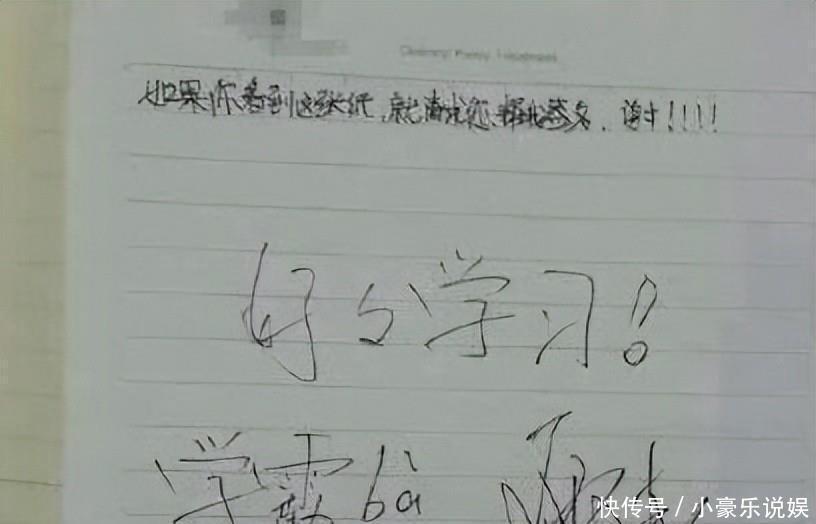 如果你看到这张纸,就请求您帮我签名.谢谢!!!!
好好学习!
学霸 bà
快传号/小豪乐说娱